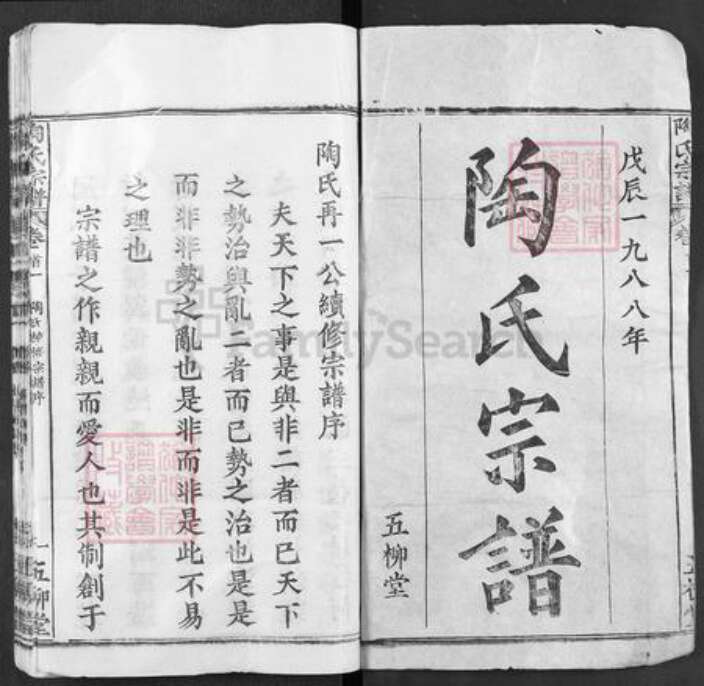 戊辰一九八八年
陶氏宗譜
五柳堂
陶氏再一公續修宗譜序
夫天下之事是與非二者而已天下
之勢治與亂二者而已勢之治也是是
而非非勢之亂也是非而非是此不易
之理也
宗譜之作親親而愛人也其制創于
陶氏宗譜 卷首一
五柳堂
陶氏宗譜
FamilySearch